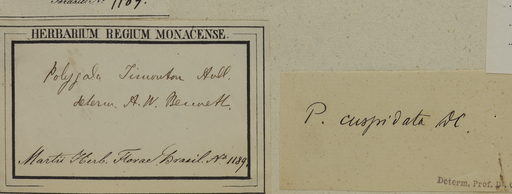 1189.
HERBARIUM REGIUM MONACENSE.
Polygala Timoutou Aubl.
determ. A. W. Bennett.
Martii Herb. Florae Brasil. No 1189.
P. cuspidata DC.
Determ. Prof. D.